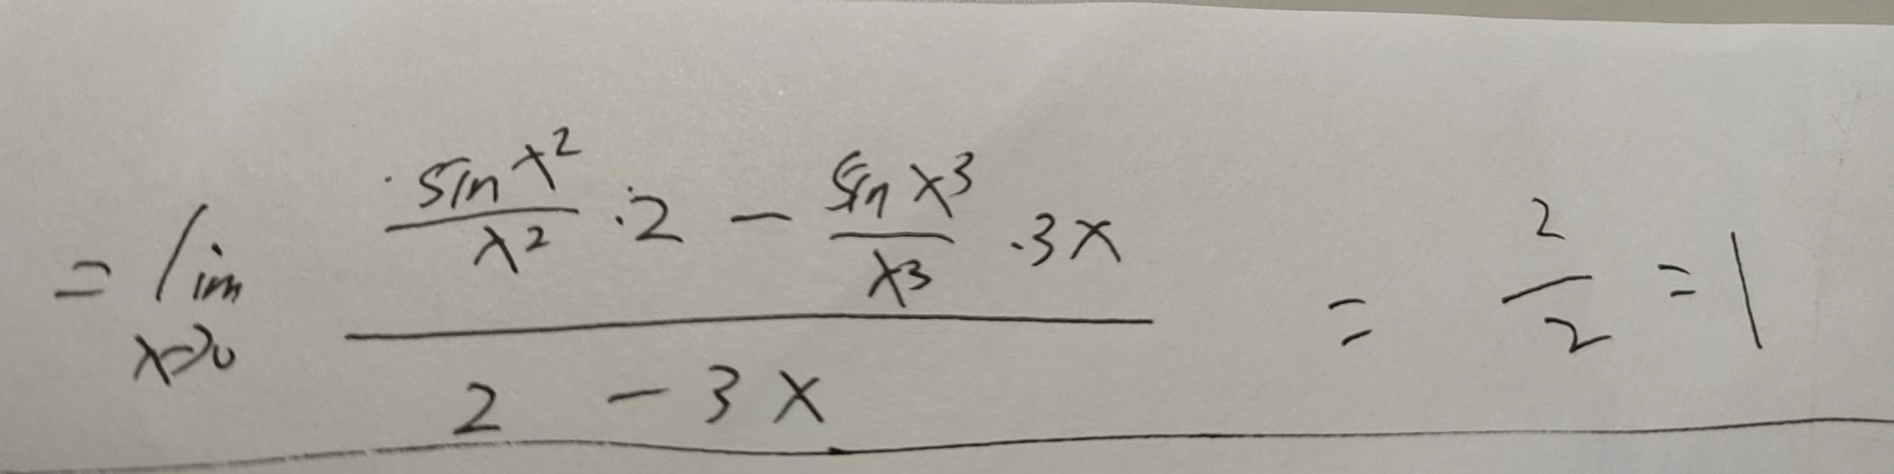 = lim x→0 (sin x²/x² · 2 − sin x³/x³ · 3x)/(2 − 3x) = 2/2 = 1